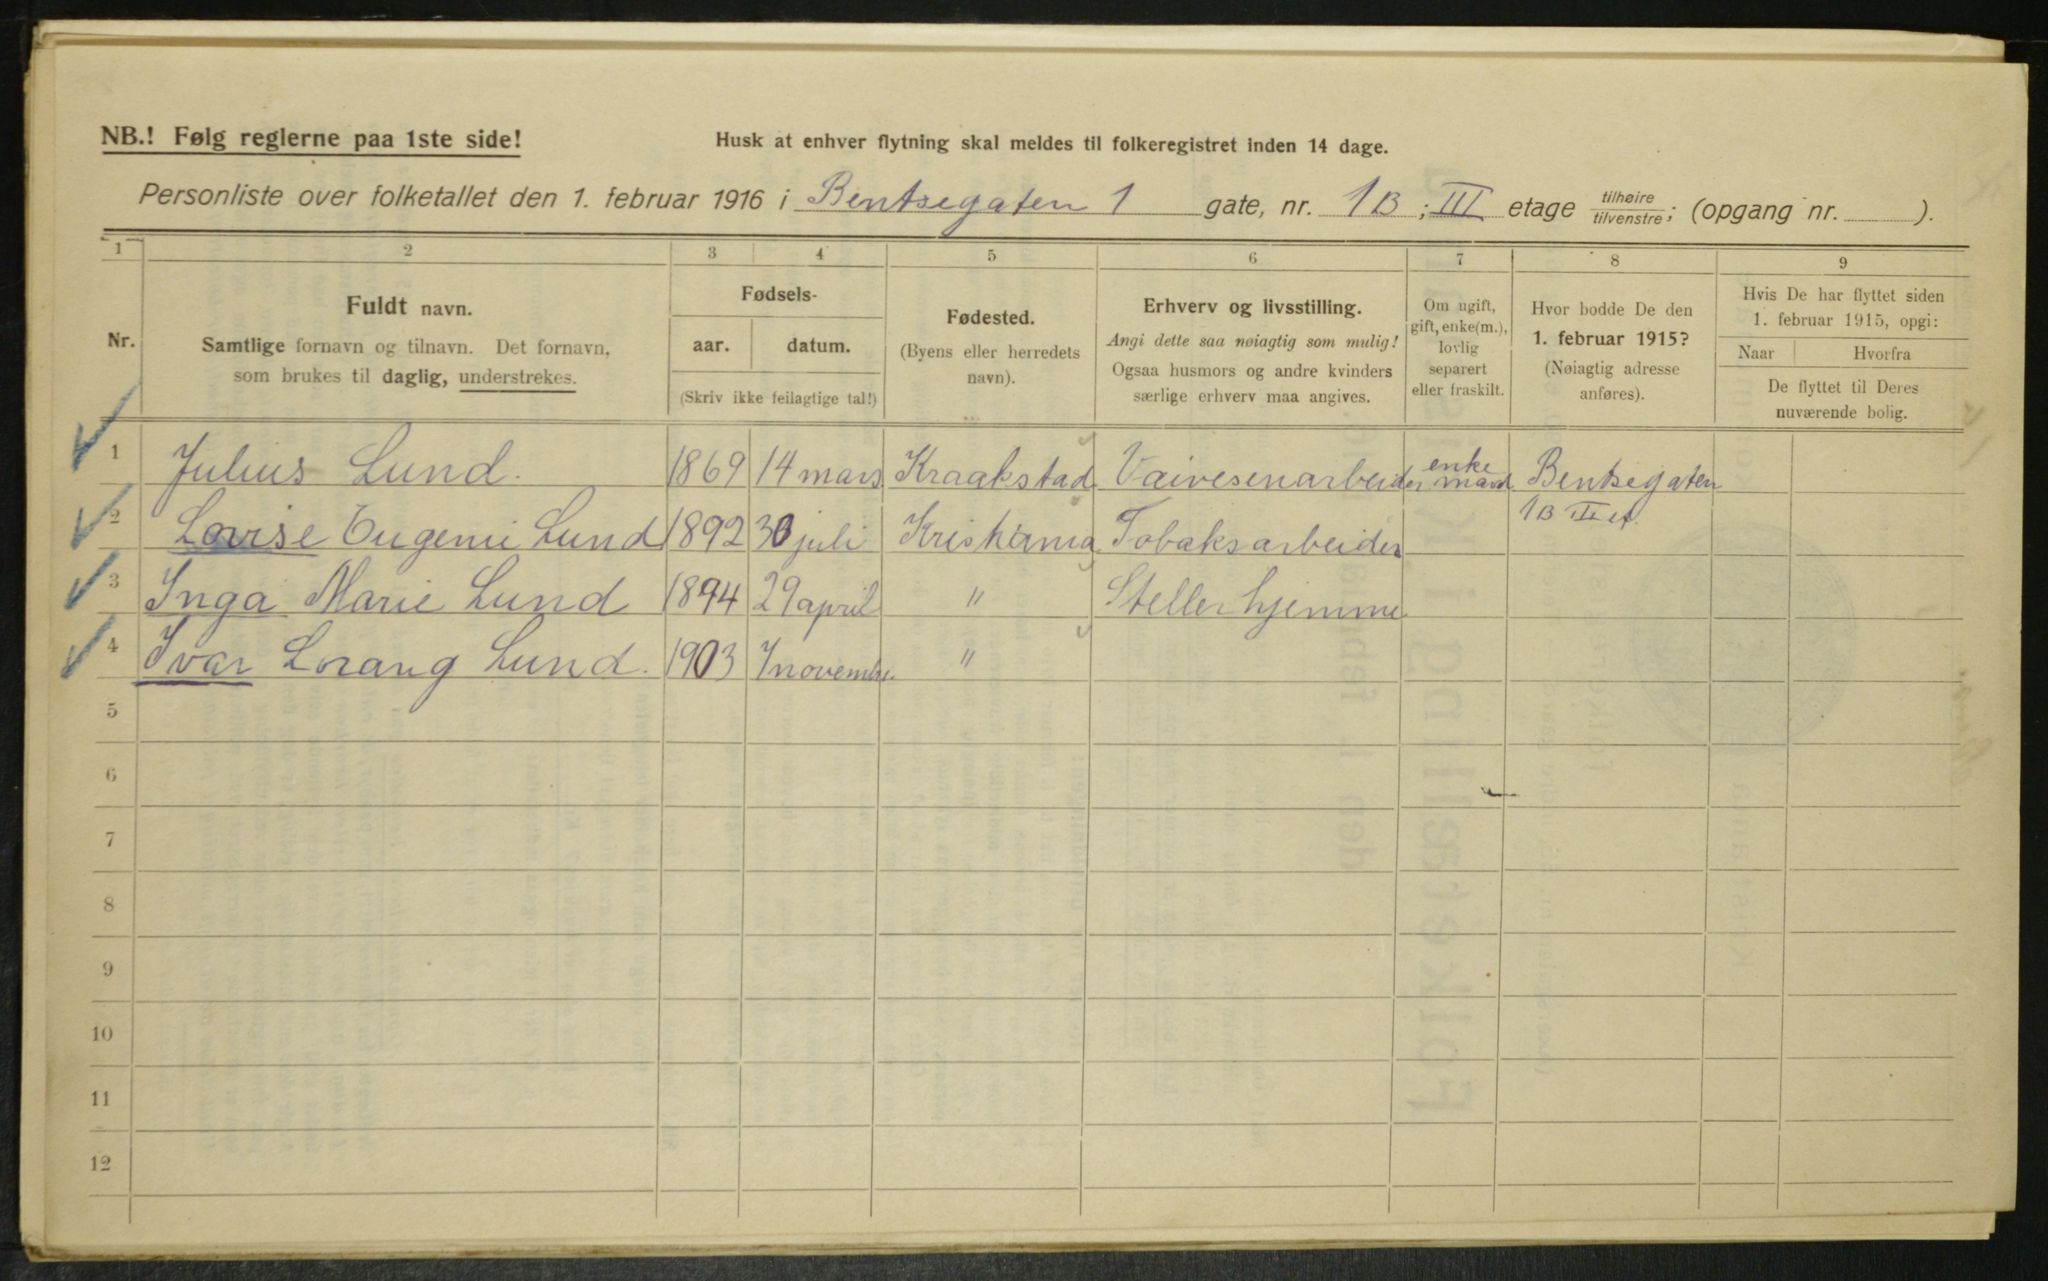 NB.! Følg reglerne paa 1ste side!
Husk at enhver flytning skal meldes til folkeregistret inden 14 dage.
Personliste over folketallet den 1. februar 1916 i Bentsegaten 1 gate, nr. 1B ; III etage tilhøire/tilvenstre; (opgang nr. ).
1 2 3 4 5 6 7 8 9
Nr.
Fuldt navn.
Samtlige fornavn og tilnavn. Det fornavn,
som brukes til daglig, understrekes.
Fødsels-
aar. datum.
(Skriv ikke feilagtige tal!)
Fødested.
(Byens eller herredets
navn).
Erhverv og livsstilling.
Angi dette saa nøiagtig som mulig!
Ogsaa husmors og andre kvinders
særlige erhverv maa angives.
Om ugift,
gift, enke(m.),
lovlig
separert
eller fraskilt.
Hvor bodde De den
1. februar 1915?
(Nøiagtig adresse
anføres).
Hvis De har flyttet siden
1. februar 1915, opgi:
Naar Hvorfra
De flyttet til Deres
nuværende bolig.
1 Julius Lund. 1869 14 mars Kraakstad Vaivesenarbeider enke mand Bentsegaten
1B III et.
2 Lovise Eugeni Lund 1892 30 juli Kristiania Tobaksarbeider
3 Inga Marie Lund 1894 29 april " Steller hjemme
4 Ivar Lorang Lund. 1903 7 november "
5
6
7
8
9
10
11
12